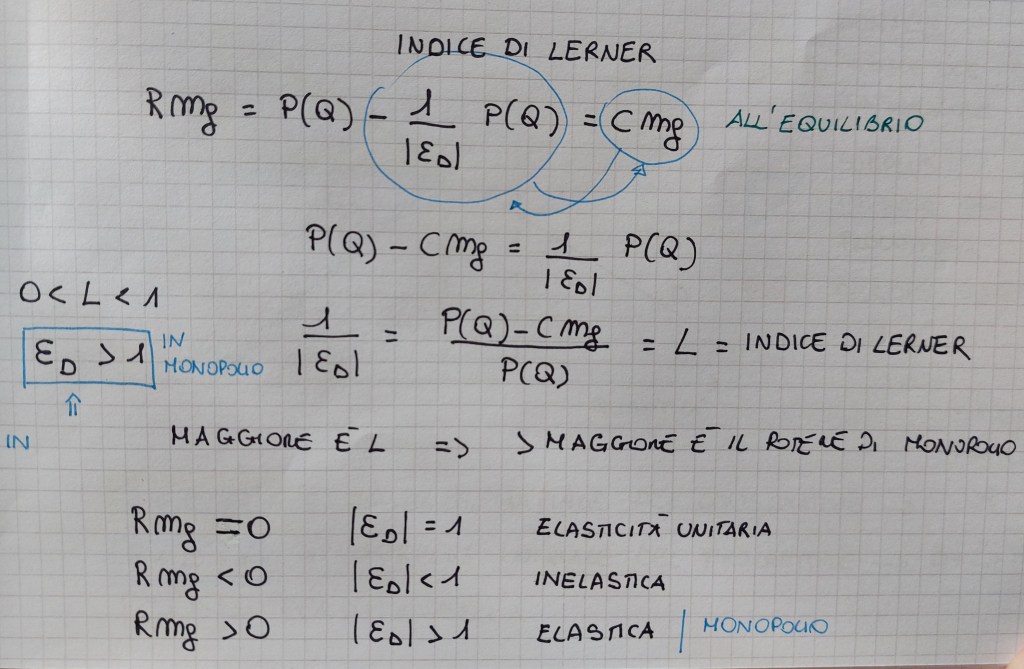 INDICE DI LERNER
RMg = P(Q) - 1/|ε_D| P(Q) = CMg ALL'EQUILIBRIO
P(Q) - CMg = 1/|ε_D| P(Q)
0 < L < 1
1/|ε_D| = (P(Q) - CMg)/P(Q) = L = INDICE DI LERNER
ε_D > 1 IN MONOPOLIO
⇑
IN
MAGGIORE È L => > MAGGIORE È IL POTERE DI MONOPOLIO
RMg = 0 |ε_D| = 1 ELASTICITÀ UNITARIA
RMg < 0 |ε_D| < 1 INELASTICA
RMg > 0 |ε_D| > 1 ELASTICA | MONOPOLIO